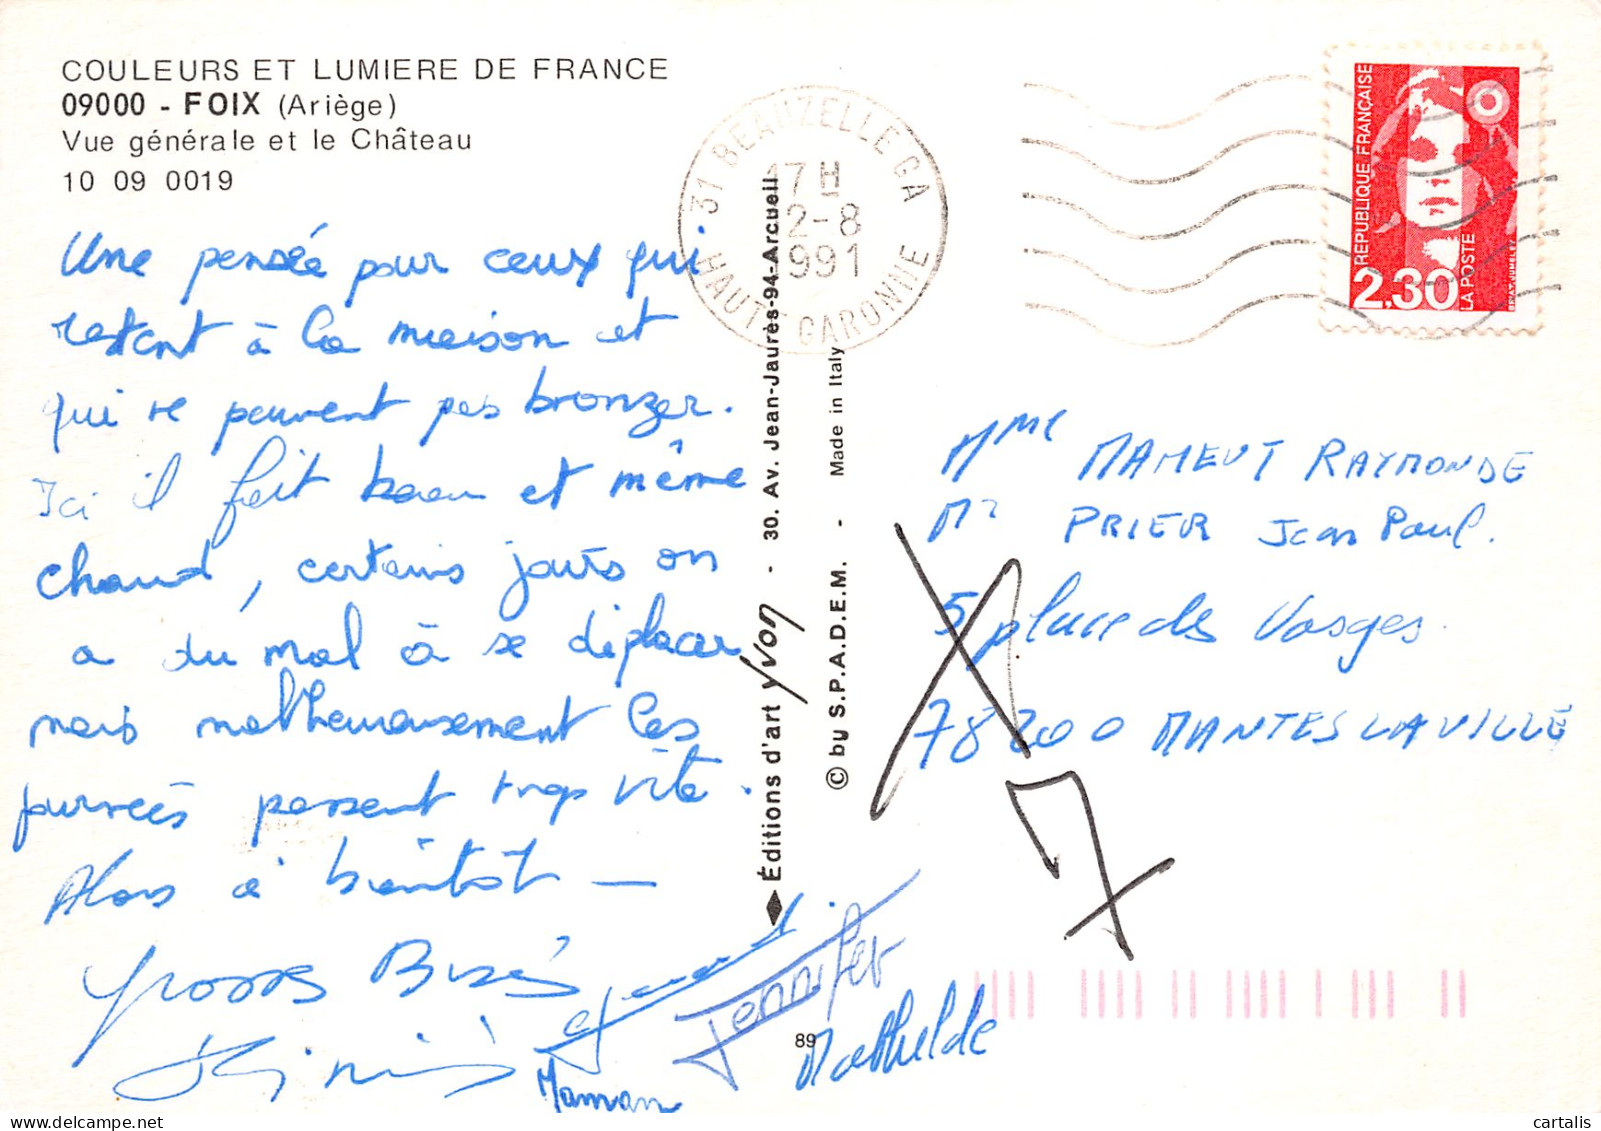 COULEURS ET LUMIERE DE FRANCE
09000 - FOIX (Ariège)
Vue générale et le Château
10 09 0019
Une pensée pour ceux qui
restent à la maison et
qui ne peuvent pas bronzer.
Ici il fait beau et même
chaud, certains jours on
a du mal à se déplacer
mais malheureusement les
journées passent trop vite.
Alors à bientôt —
grosses Bises
Maman
Jennifer
Mathilde
Éditions d'art Yvon - 30. Av. Jean-Jaurès-94-Arcueil
© by S.P.A.D.E.M. - Made in Italy
89
31 BEAUZELLE CA
17 H
2-8
1991
HAUTE GARONNE
RÉPUBLIQUE FRANÇAISE
2,30
LA POSTE
Mme MAHEUT RAYMONDE
Mr PRIER Jean Paul.
5 place des Vosges.
78200 MANTES LA VILLE
7
www.cartalis.com